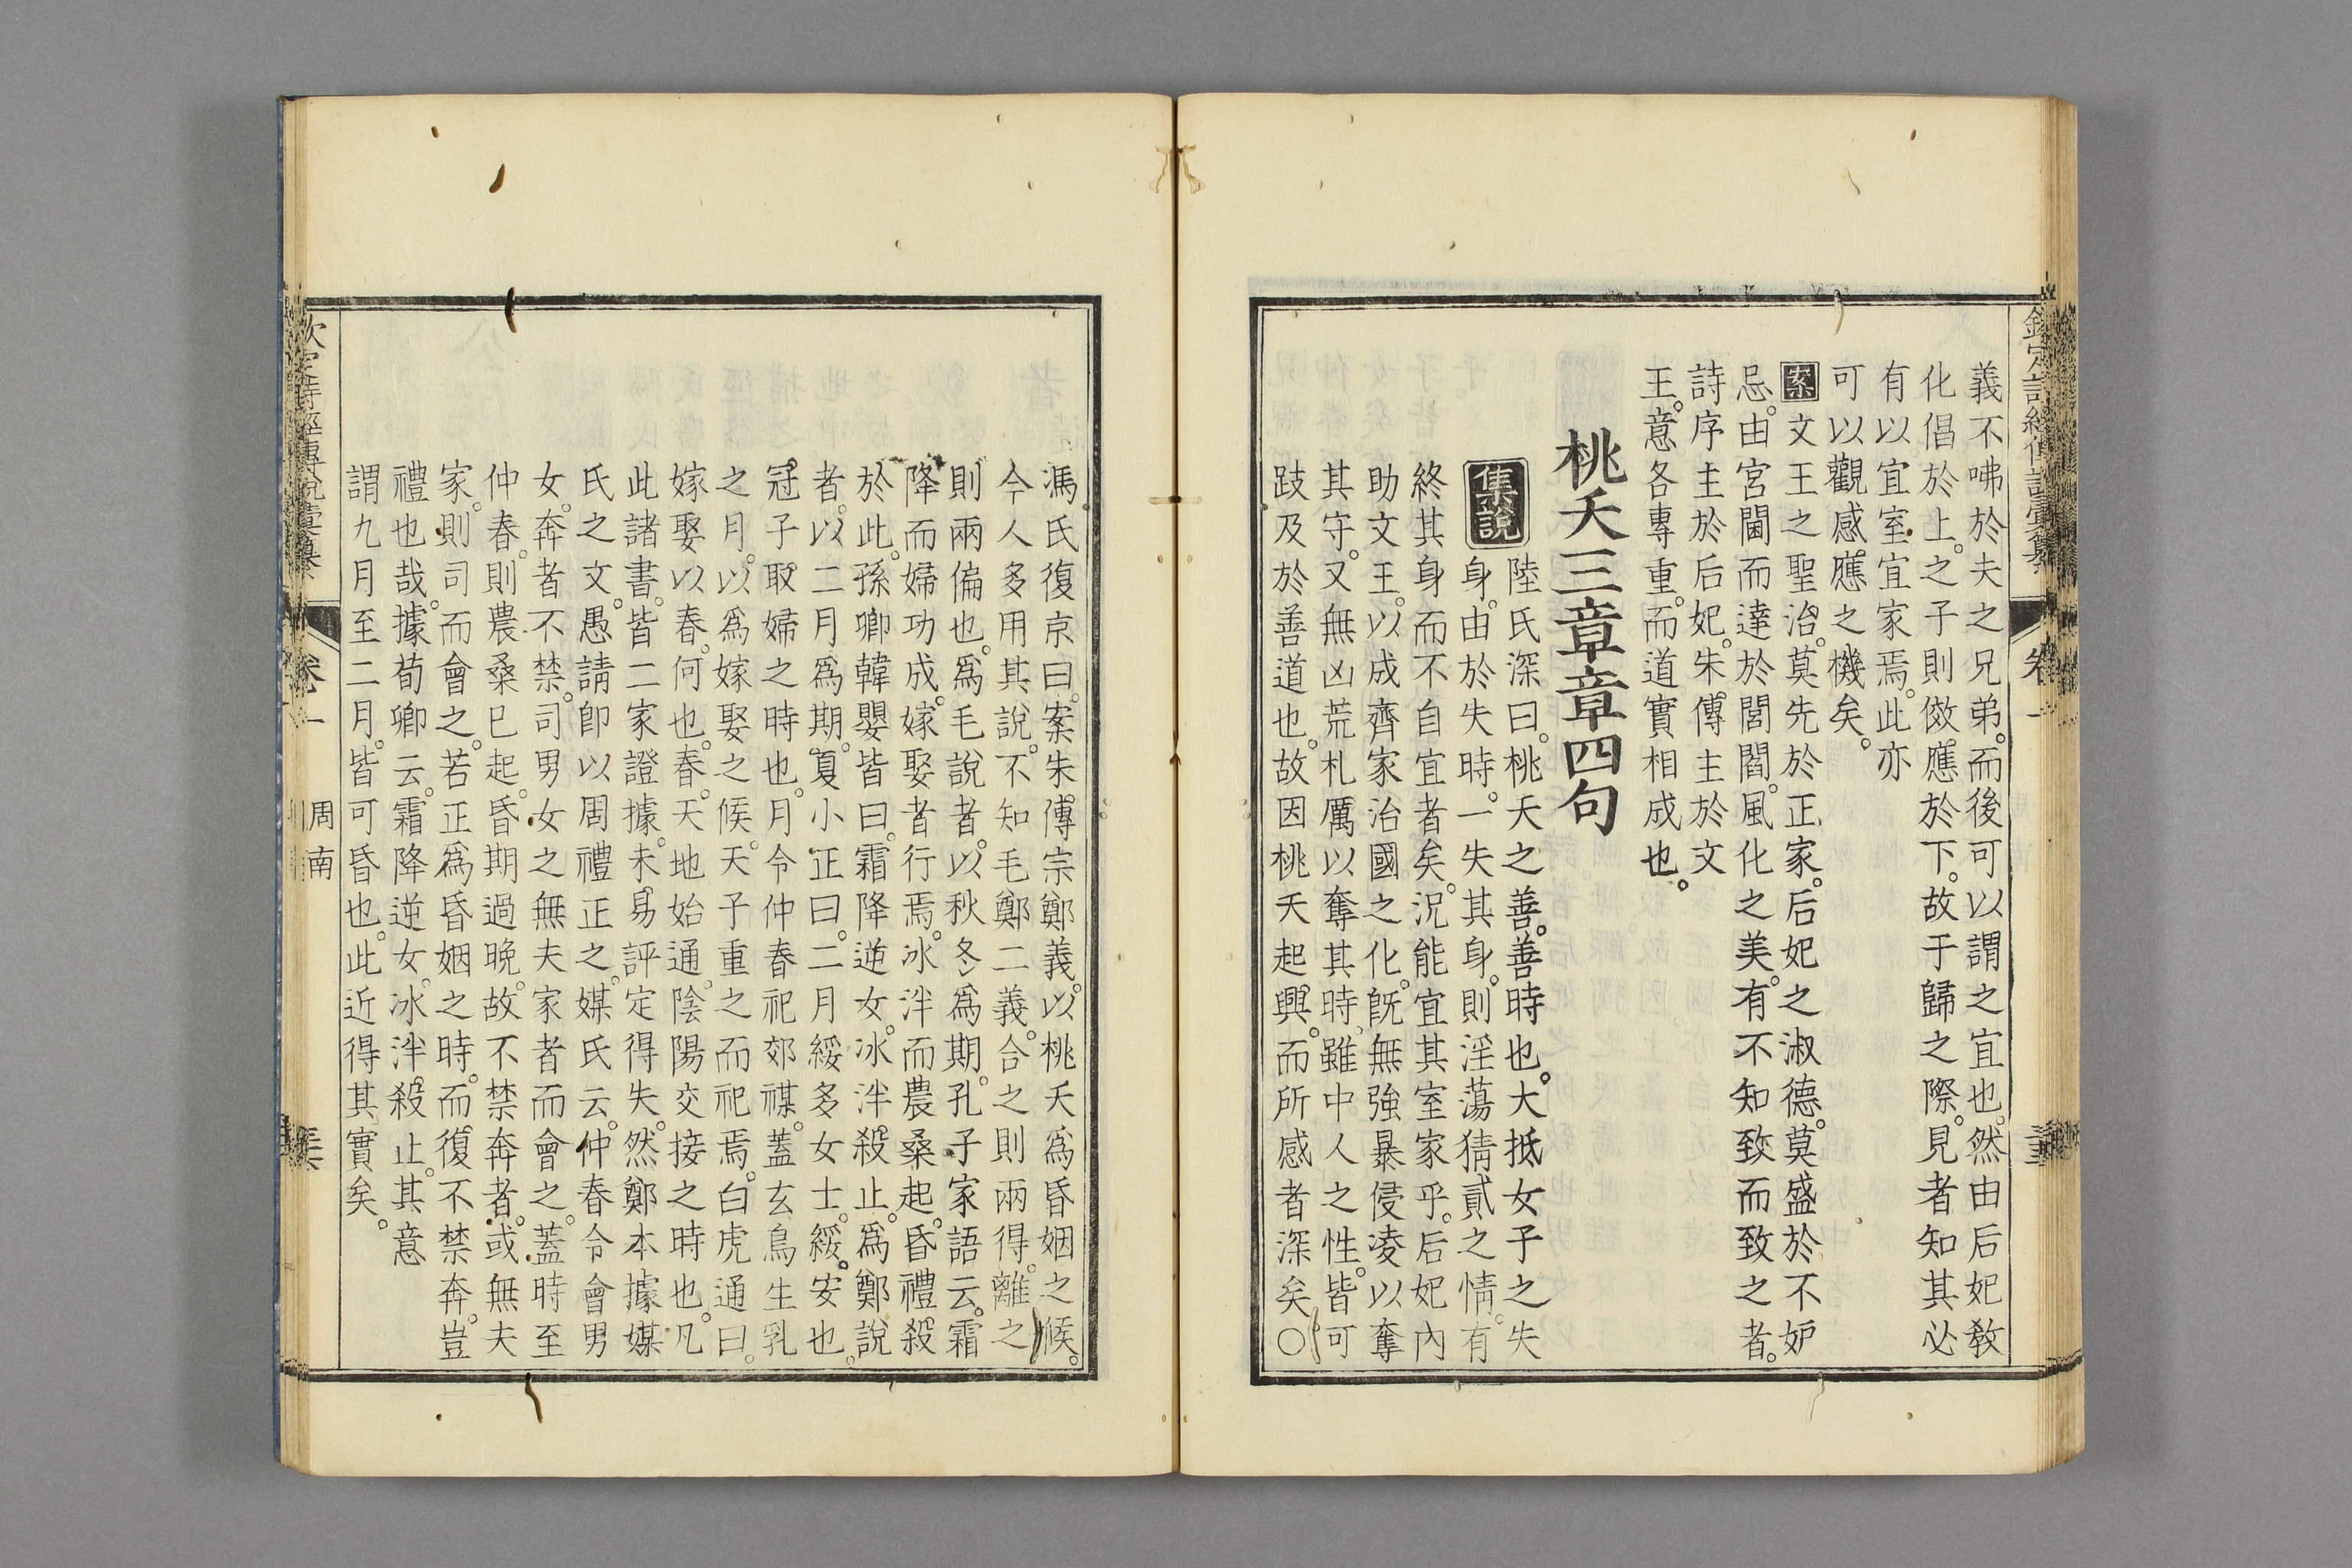 義不咈於夫之兄弟。而後可以謂之宜也。然由后妃敎
化倡於上。之子則傚應於下。故于歸之際。見者知其必
有以宜室宜家焉。此亦
可以觀感應之機矣。
案文王之聖治。莫先於正家。后妃之淑德。莫盛於不妒
忌。由宮闈而達於閭閻。風化之美。有不知致而致之者。
詩序主於后妃。朱傳主於文
王。意各專重。而道實相成也。
桃夭三章章四句
集說 陸氏深曰。桃夭之善。善時也。大抵女子之失
身。由於失時。一失其身。則淫蕩猜貳之情。有
終其身而不自宜者矣。況能宜其室家乎。后妃內
助文王。以成齊家治國之化。旣無強暴侵凌以奪
其守。又無凶荒札厲以奪其時。雖中人之性。皆可
跂及於善道也。故因桃夭起興。而所感者深矣〇
馮氏復京曰。案朱傳宗鄭義。以桃夭爲昏姻之候。
今人多用其說。不知毛鄭二義。合之則兩得。離之
則兩偏也。爲毛說者。以秋冬爲期。孔子家語云。霜
降而婦功成。嫁娶者行焉。冰泮而農桑起。昏禮殺
於此。孫卿韓嬰皆曰。霜降逆女。冰泮殺止。爲鄭說
者。以二月爲期。夏小正曰。二月綏多女士。綏。安也。
冠子取婦之時也。月令仲春祀郊禖。蓋玄鳥生乳
之月。以爲嫁娶之候。天子重之而祀焉。白虎通曰。
嫁娶以春。何也。春。天地始通。陰陽交接之時也。凡
此諸書。皆二家證據。未易評定得失。然鄭本據媒
氏之文。愚請卽以周禮正之。媒氏云。仲春令會男
女。奔者不禁。司男女之無夫家者而會之。蓋時至
仲春。則農桑已起。昏期過晚。故不禁奔者。或無夫
家。則司而會之。若正爲昏姻之時。而復不禁奔。豈
禮也哉。據荀卿云。霜降逆女。冰泮殺止。其意
謂九月至二月。皆可昏也。此近得其實矣。
欽定詩經傳說彙纂 卷一 周南